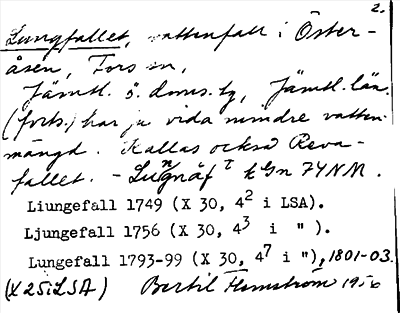 2.
Ljungfallet, vattenfall i Öster-
åsen, Fors sn,
Jämtl. ö. doms. tg, Jämtl. län.
(forts.) har ju vida mindre vatten-
mängd. Kallas också Reva-
fallet. –
Liungefall 1749 (X 30, 4² i LSA).
Ljungefall 1756 (X 30, 4³ i " ).
Lungefall 1793-99 (X 30, 4⁷ i "), 1801-03.
(X 25 i LSA) Bertil Flemström 1956